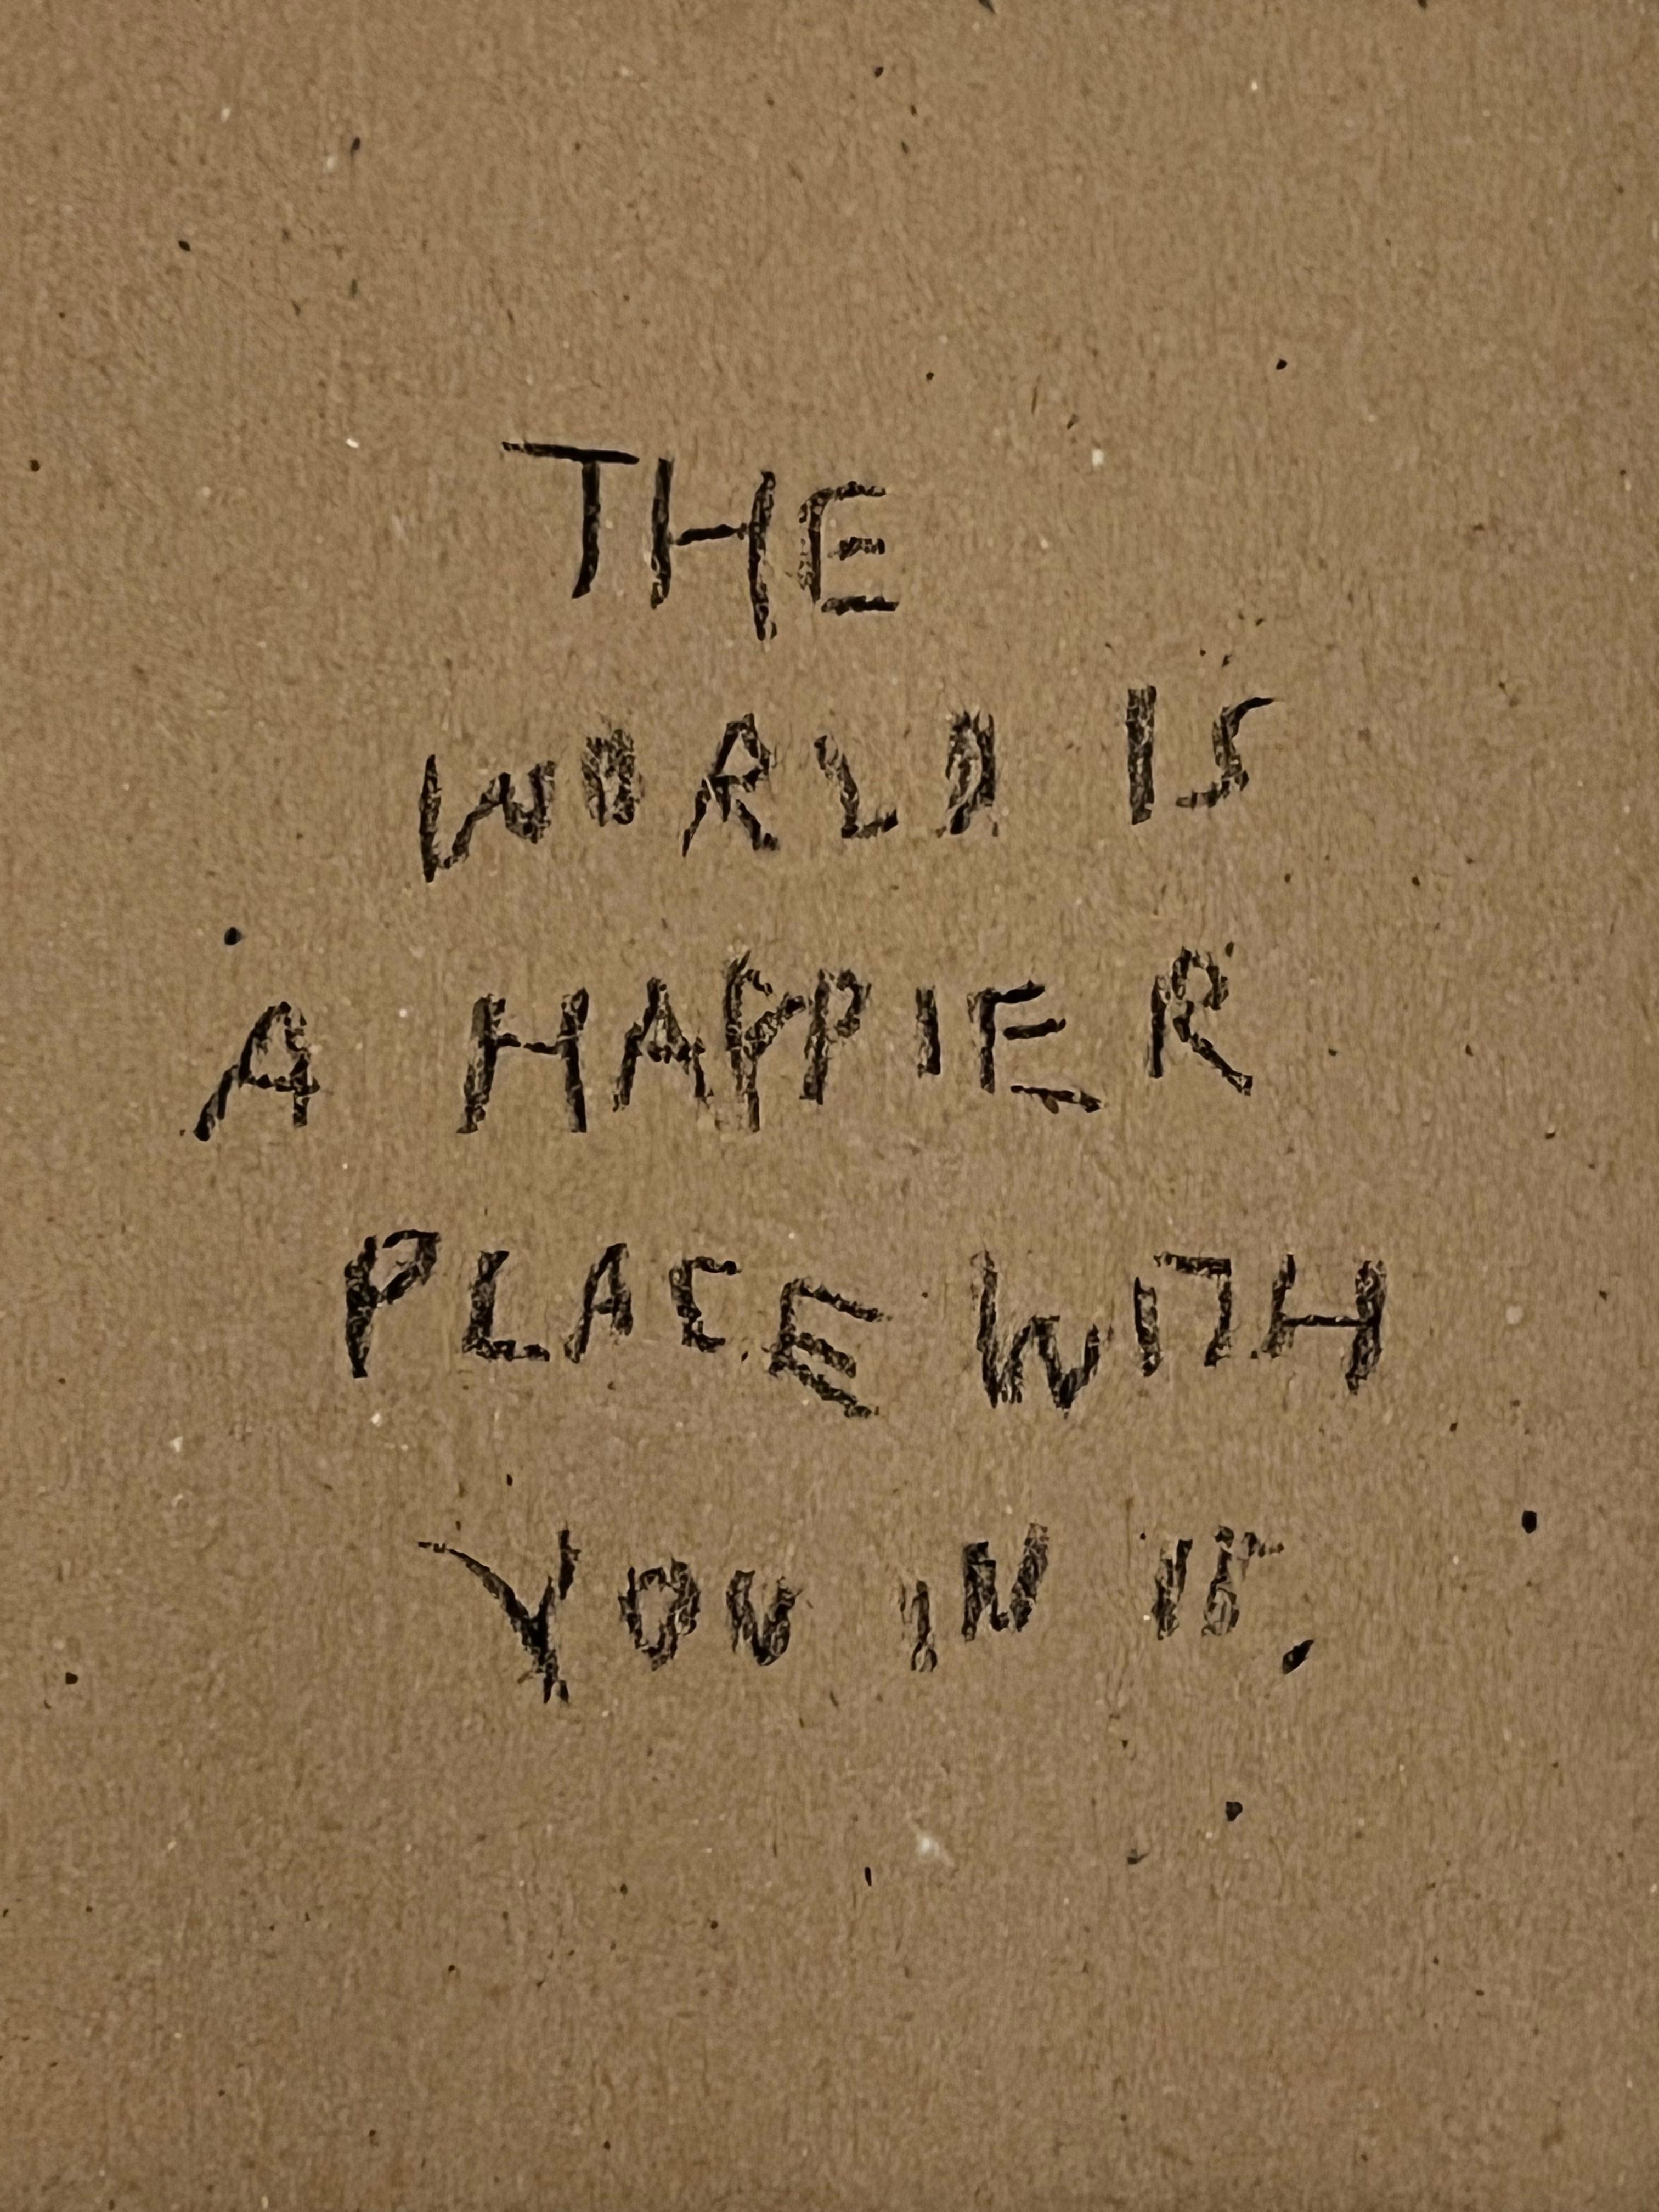 THE
WORLD IS
A HAPPIER
PLACE WITH
YOU IN IT.